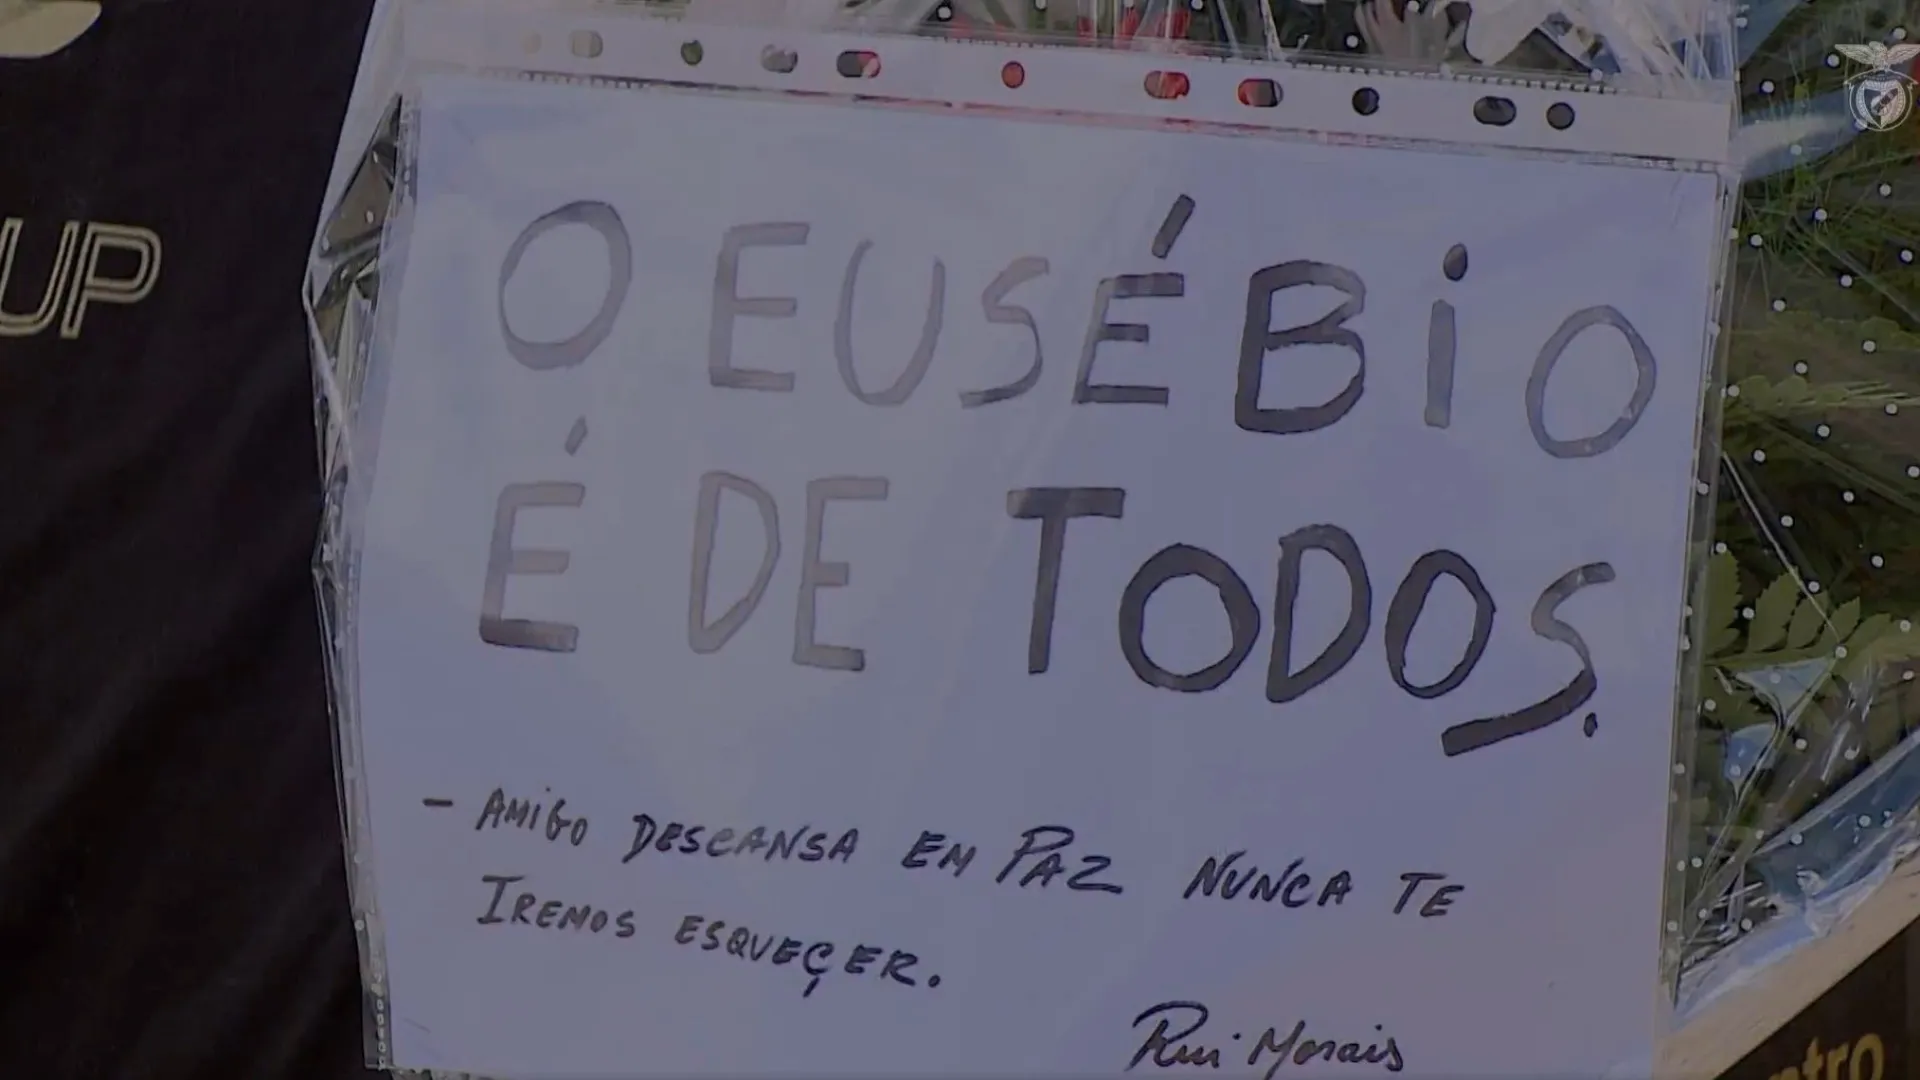 UP
O EUSÉBiO
É DE TODOS.
- AMiGO DESCANSA EM PAZ NUNCA TE
IREMOS ESQUEÇER.
Rui Morais
ntro